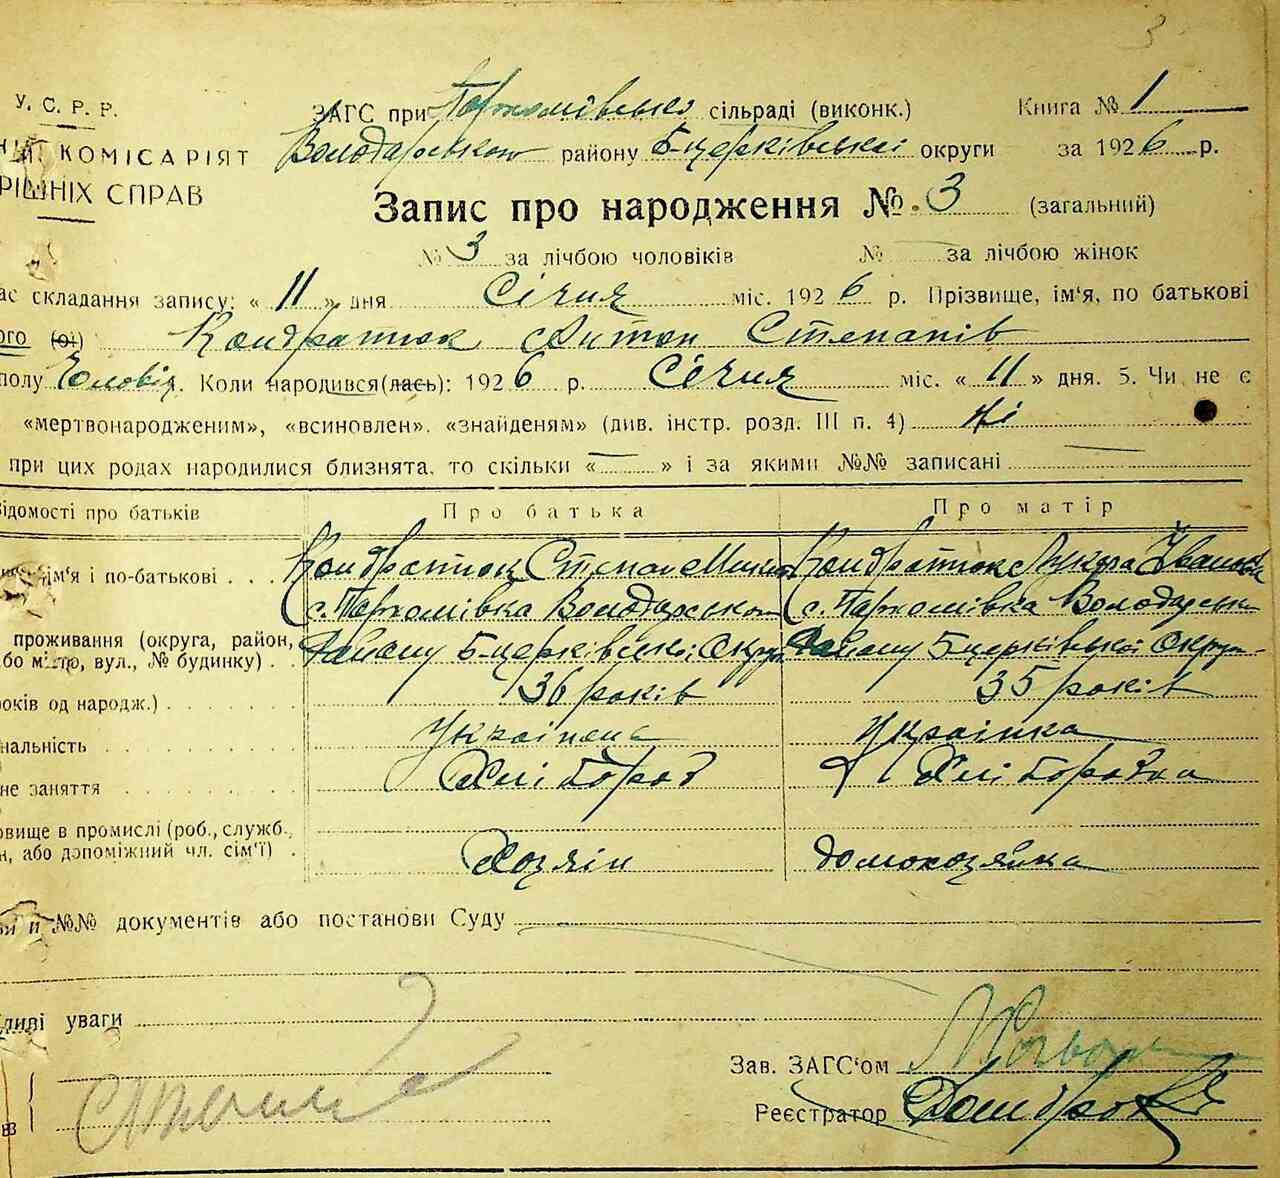 3
У. С. Р. Р.
ЗАГС при Пархомівській сільраді (виконк.) Книга № 1
КОМІСАРІЯТ Володарського району Б-церківської округи за 1926 р.
РІШНІХ СПРАВ
Запис про народження №. 3 (загальний)
№ 3 за лічбою чоловіків № за лічбою жінок
ас складання запису: « 11 » дня Січня міс. 1926 р. Прізвище, ім'я, по батькові
ого (ої) Кондратюк Антон Степанів
полу Чоловіч. Коли народився(лась): 1926 р. Січня міс. « 11 » дня. 5. Чи не є
«мертвонародженим», «всиновлен», «знайденям» (див. інстр. розд. III п. 4) Ні
при цих родах народилися близнята, то скільки « — » і за якими №№ записані —
ідомості про батьків Про батька Про матір
ім'я і по-батькові . . . Кондратюк Степан Кондратюк Іванов
с. Пархомівка Володарського с. Пархомівка Володарськ
проживання (округа, район, Району Б-церківської Округи Району Б-церківської Округи
бо місто, вул., № будинку) . .
років од народж.) 36 років 35 років
нальність Українець Українка
не заняття Хлібороб Хліборобка
овище в промислі (роб., служб.,
н, або допоміжний чл. сім'ї) . Хозяїн домохозяйка
и №№ документів або постанови Суду
ливі уваги
Зав. ЗАГС'ом
Реєстратор